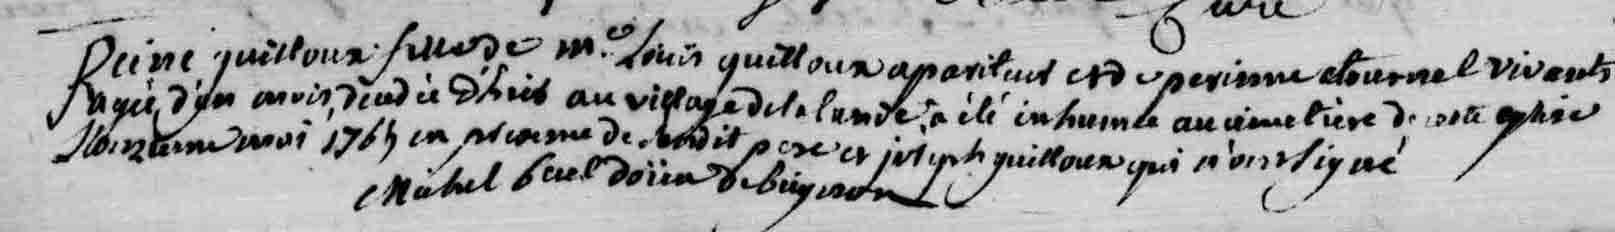 Curé
Reine guilloux fille de me Louis guilloux apariteur et de perinne etournel vivants
agée d'un mois décédée d'hier au village de la lande, a été inhumée au cimetière de cette eglise
l'onzieme mai 1765 en presence dudit pere et joseph guilloux qui n'ont signé
Michel doïen de beignon